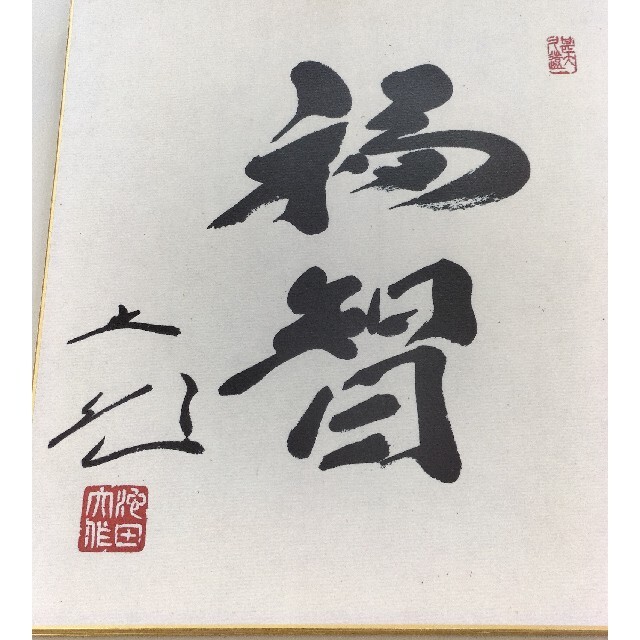 福智
大作
池田大作